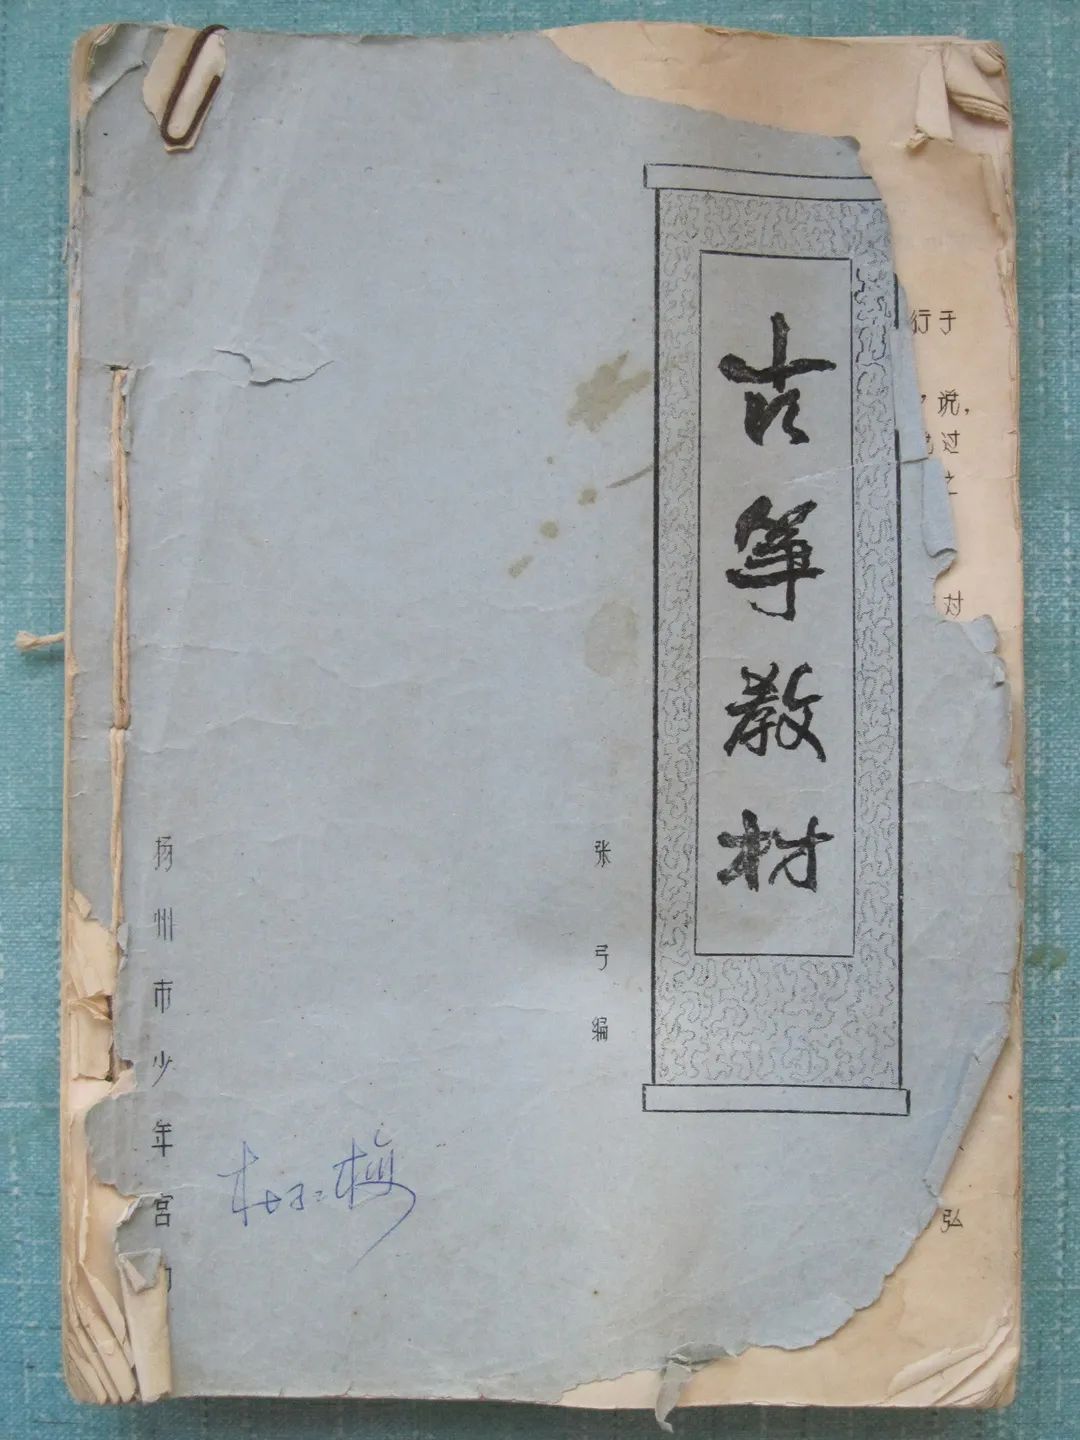 古筝教材
张弓编
扬州市少年宫
行于
，说，
过
之
对
弘